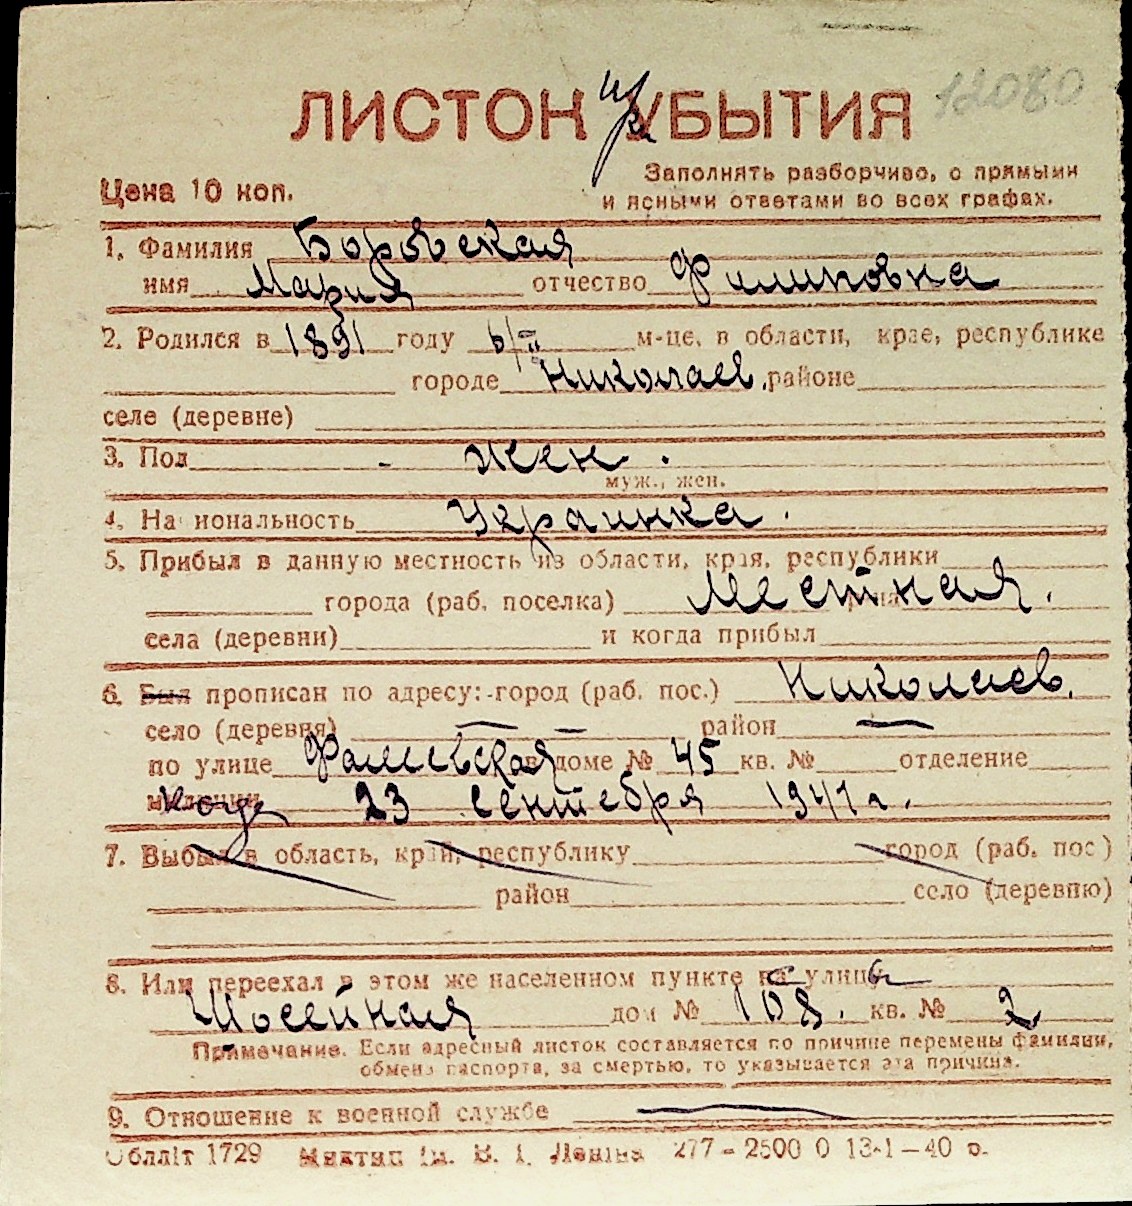 12080
ЛИСТОК при УБЫТИЯ
Цена 10 коп.
Заполнять разборчиво, с прямыми
и ясными ответами во всех графах.
1. Фамилия Боровская
имя Мария отчество Филиповна
2. Родился в 1891 году 6/II м-це, в области, крае, республике
городе Николаев. районе
селе (деревне)
3. Пол - жен.
муж., жен.
4. Национальность Украинка.
5. Прибыл в данную местность из области, края, республики
города (раб. поселка) Местная.
села (деревни) и когда прибыл
6. Был прописан по адресу: город (раб. пос.) Николаев.
село (деревня) — — район —
по улице в доме № 45 кв. № отделение
милиции когда 23 Сентября 1941 г.
7. Выбыл в область, край, республику город (раб. пос)
район село (деревню)
8. Или переехал в этом же населенном пункте с улицы
Шосейная дом № 108. кв. № 2
Примечание. Если адресный листок составляется по причине перемены фамилии,
обмена паспорта, за смертью, то указывается эта причина.
9. Отношение к военной службе —
Облліт 1729 Миктип ім. В. І. Леніна 277–2500 0 13-1–40 р.